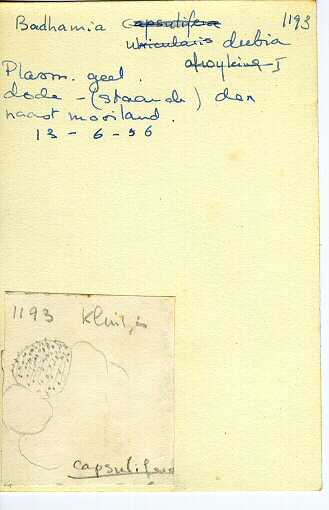 Badhamia capsulifera 1193
utricularis dubia
afwyking-I
Plasm. geel.
dode - (staande) den
naast mooiland.
13 - 6 - 56
1193
capsulifera